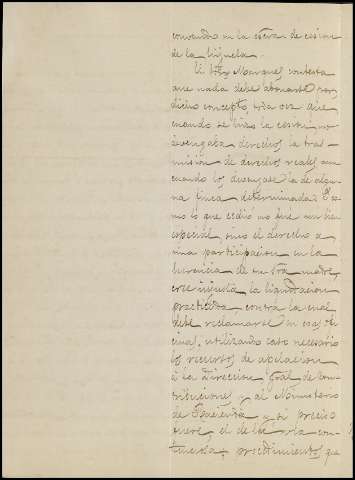 convenido en la escra de cesion
de la hijuela.
El Sr Marques contesta
que nada debe abonarse por
dicho concepto, toda vez que
cuando se hizo la cesión no
devengaba derechos la tras-
misión de derechos reales aun
cuando los devengase la de algu
na finca determinada. Co
mo lo que cedio no fué un bien
especial, sino el derecho a
una participacion en la
herencia de su Sra madre,
cree injusta la liquidacion
practicada contra la cual
debe reclamarse en esas ofi
cinas, utilizando caso necesario
los recursos de apelacion
á la Direccion Gral de Con-
tribuciones y al Ministerio
de Hacienda y si preciso
fuere, el de la vía con-
tenciosa, procedimientos que